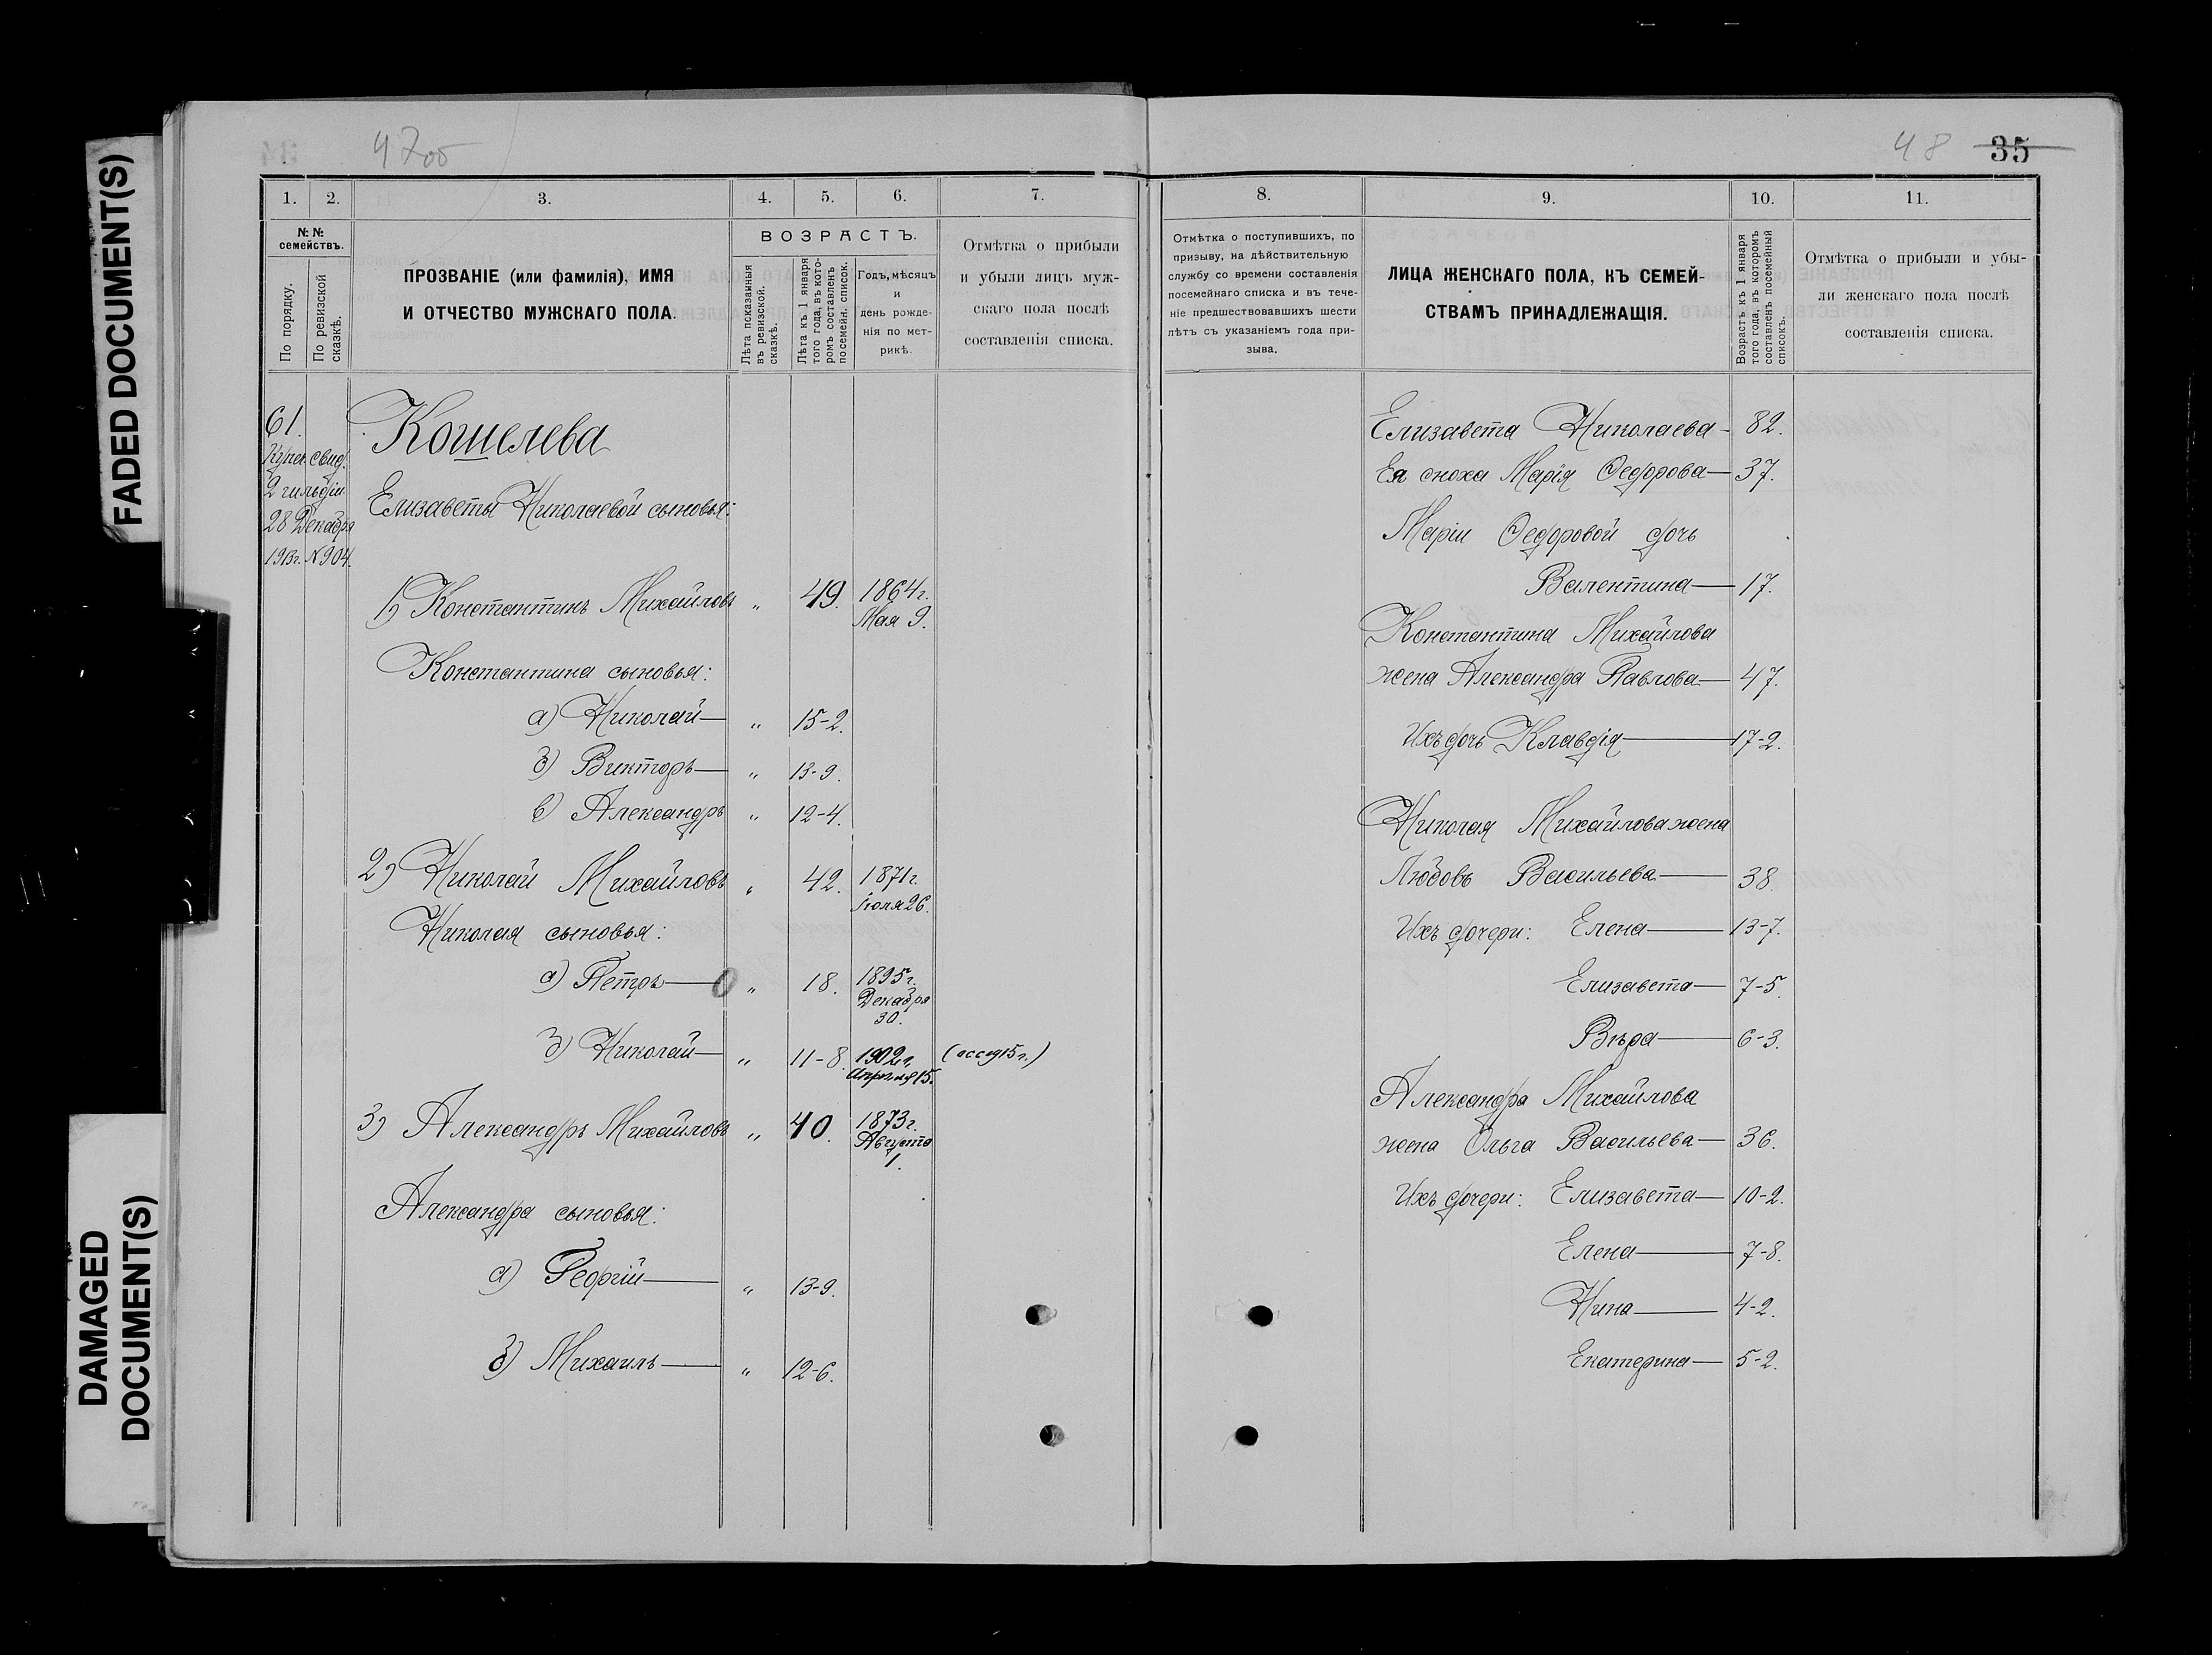 FADED DOCUMENT(S)
DAMAGED
DOCUMENT(S)
47об
1. 2. 3. 4. 5. 6. 7.
№ №
семействъ.
По порядку.
По ревизской
сказкѣ.
ПРОЗВАНІЕ (или фамилія), ИМЯ
И ОТЧЕСТВО МУЖСКАГО ПОЛА.
ВОЗРАСТЪ.
Лѣта показанныя
въ ревизской.
сказкѣ.
Лѣта къ 1 января
того года, въ кото-
ромъ составленъ
посемейн. список.
Годъ, мѣсяцъ
и
день рожде-
нія по мет-
рикѣ.
Отмѣтка о прибыли
и убыли лицъ муж-
скаго пола послѣ
составленія списка.
61.
Купеч. свид.
2 гильдіи
28 Декабря
1913г. №904.
Кошелева
Елизаветы Николаевой сыновья:
1) Константинъ Михайловъ „ 49. 1864г.
Мая 9.
Константина сыновья:
а) Николай— „ 15-2.
б) Викторъ— „ 13-9.
в) Александръ „ 12-4.
2) Николай Михайловъ „ 42. 1871г.
Іюля 26.
Николая сыновья:
а) Петръ— „ 18. 1895г.
Декабря
30.
б) Николай— „ 11-8. 1902г.
Апрѣля 15.
3) Александръ Михайловъ „ 40. 1873г.
Августа
1.
Александра сыновья:
а) Георгій— „ 13-9.
б) Михаилъ— „ 12-6.
48 35
8. 9. 10. 11.
Отмѣтка о поступившихъ, по
призыву, на дѣйствительную
службу со времени составленія
посемейнаго списка и въ тече-
ніе предшествовавшихъ шести
лѣтъ съ указаніемъ года при-
зыва.
ЛИЦА ЖЕНСКАГО ПОЛА, КЪ СЕМЕЙ-
СТВАМЪ ПРИНАДЛЕЖАЩІЯ.
Возрастъ къ 1 января
того года, въ которомъ
составленъ посемейный
списокъ.
Отмѣтка о прибыли и убы-
ли женскаго пола послѣ
составленія списка.
Елизавета Николаева— 82.
Ея сноха Марія Ѳедорова— 37.
Маріи Ѳедоровой дочь
Валентина— 17.
Константина Михайлова
жена Александра Павлова— 47.
Ихъ дочь Клавдія— 17-2.
Николая Михайлова жена
Любовь Васильева— 38.
Ихъ дочери: Елена— 13-7.
Елизавета— 7-5.
Вѣра— 6-3.
Александра Михайлова
жена Ольга Васильева— 36.
Ихъ дочери: Елизавета— 10-2.
Елена— 7-8.
Нина— 4-2.
Екатерина— 5-2.